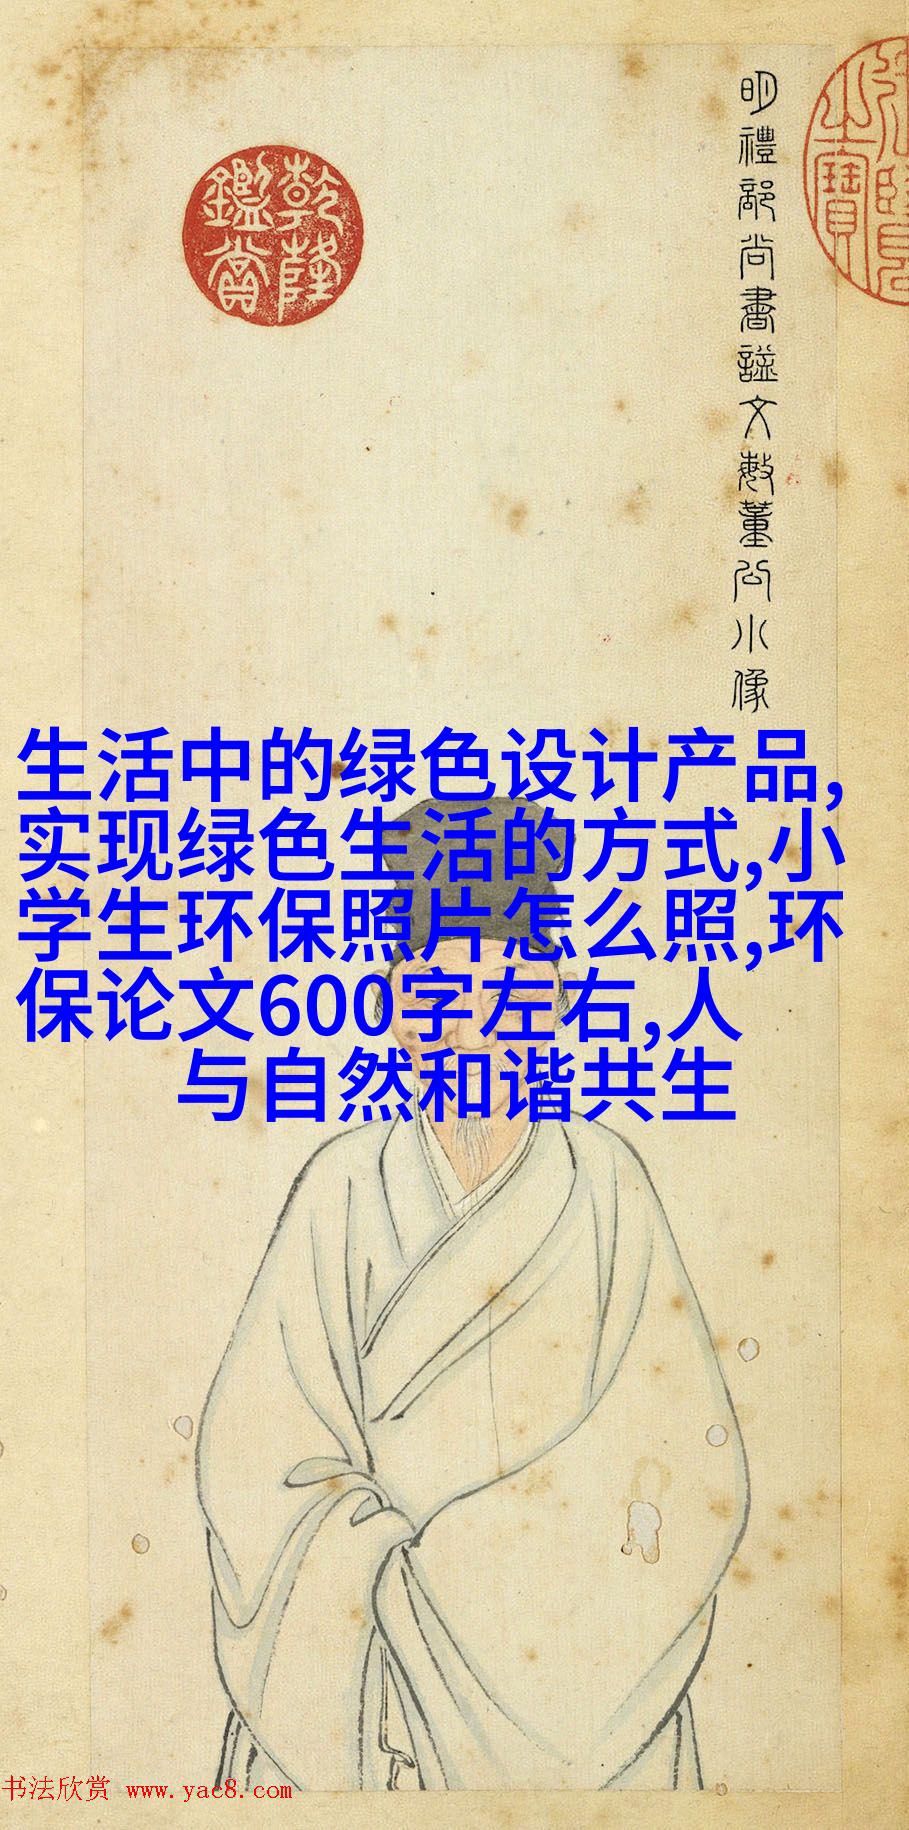 明禮部尚書諡文敏董公小像
乾隆
鑑賞
生活中的绿色设计产品,
实现绿色生活的方式,小
学生环保照片怎么照,环
保论文600字左右,人
与自然和谐共生
书法欣赏 www.yac8.com